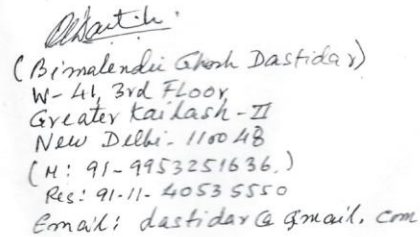 (Bimalendu Ghosh Dastidar)
W-41, 3rd Floor,
Greater Kailash-II
New Delhi-110048
(M: 91-9953251636.)
Res: 91-11-40535550
Email: dastidar@gmail.com